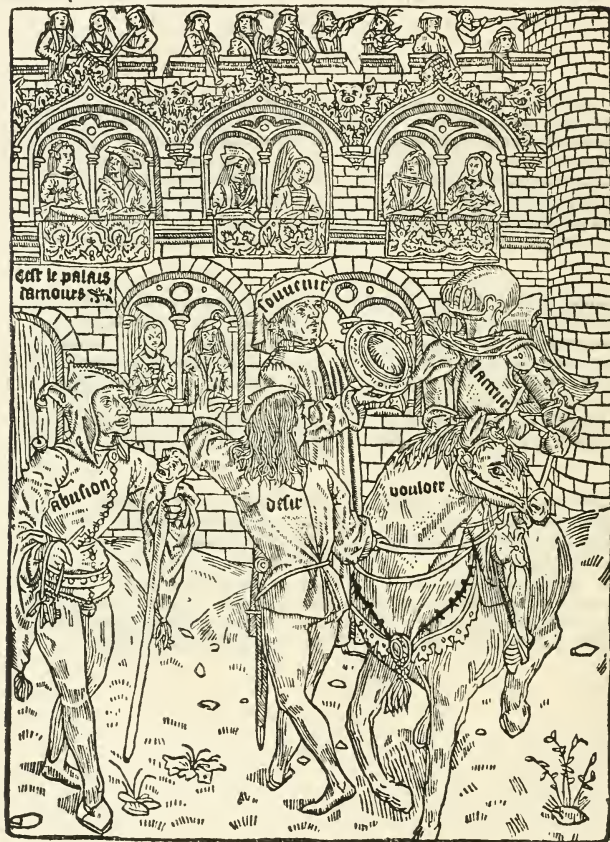 Cest le palais
damours
souvenir
lacteur
abusion
desir
vouloir